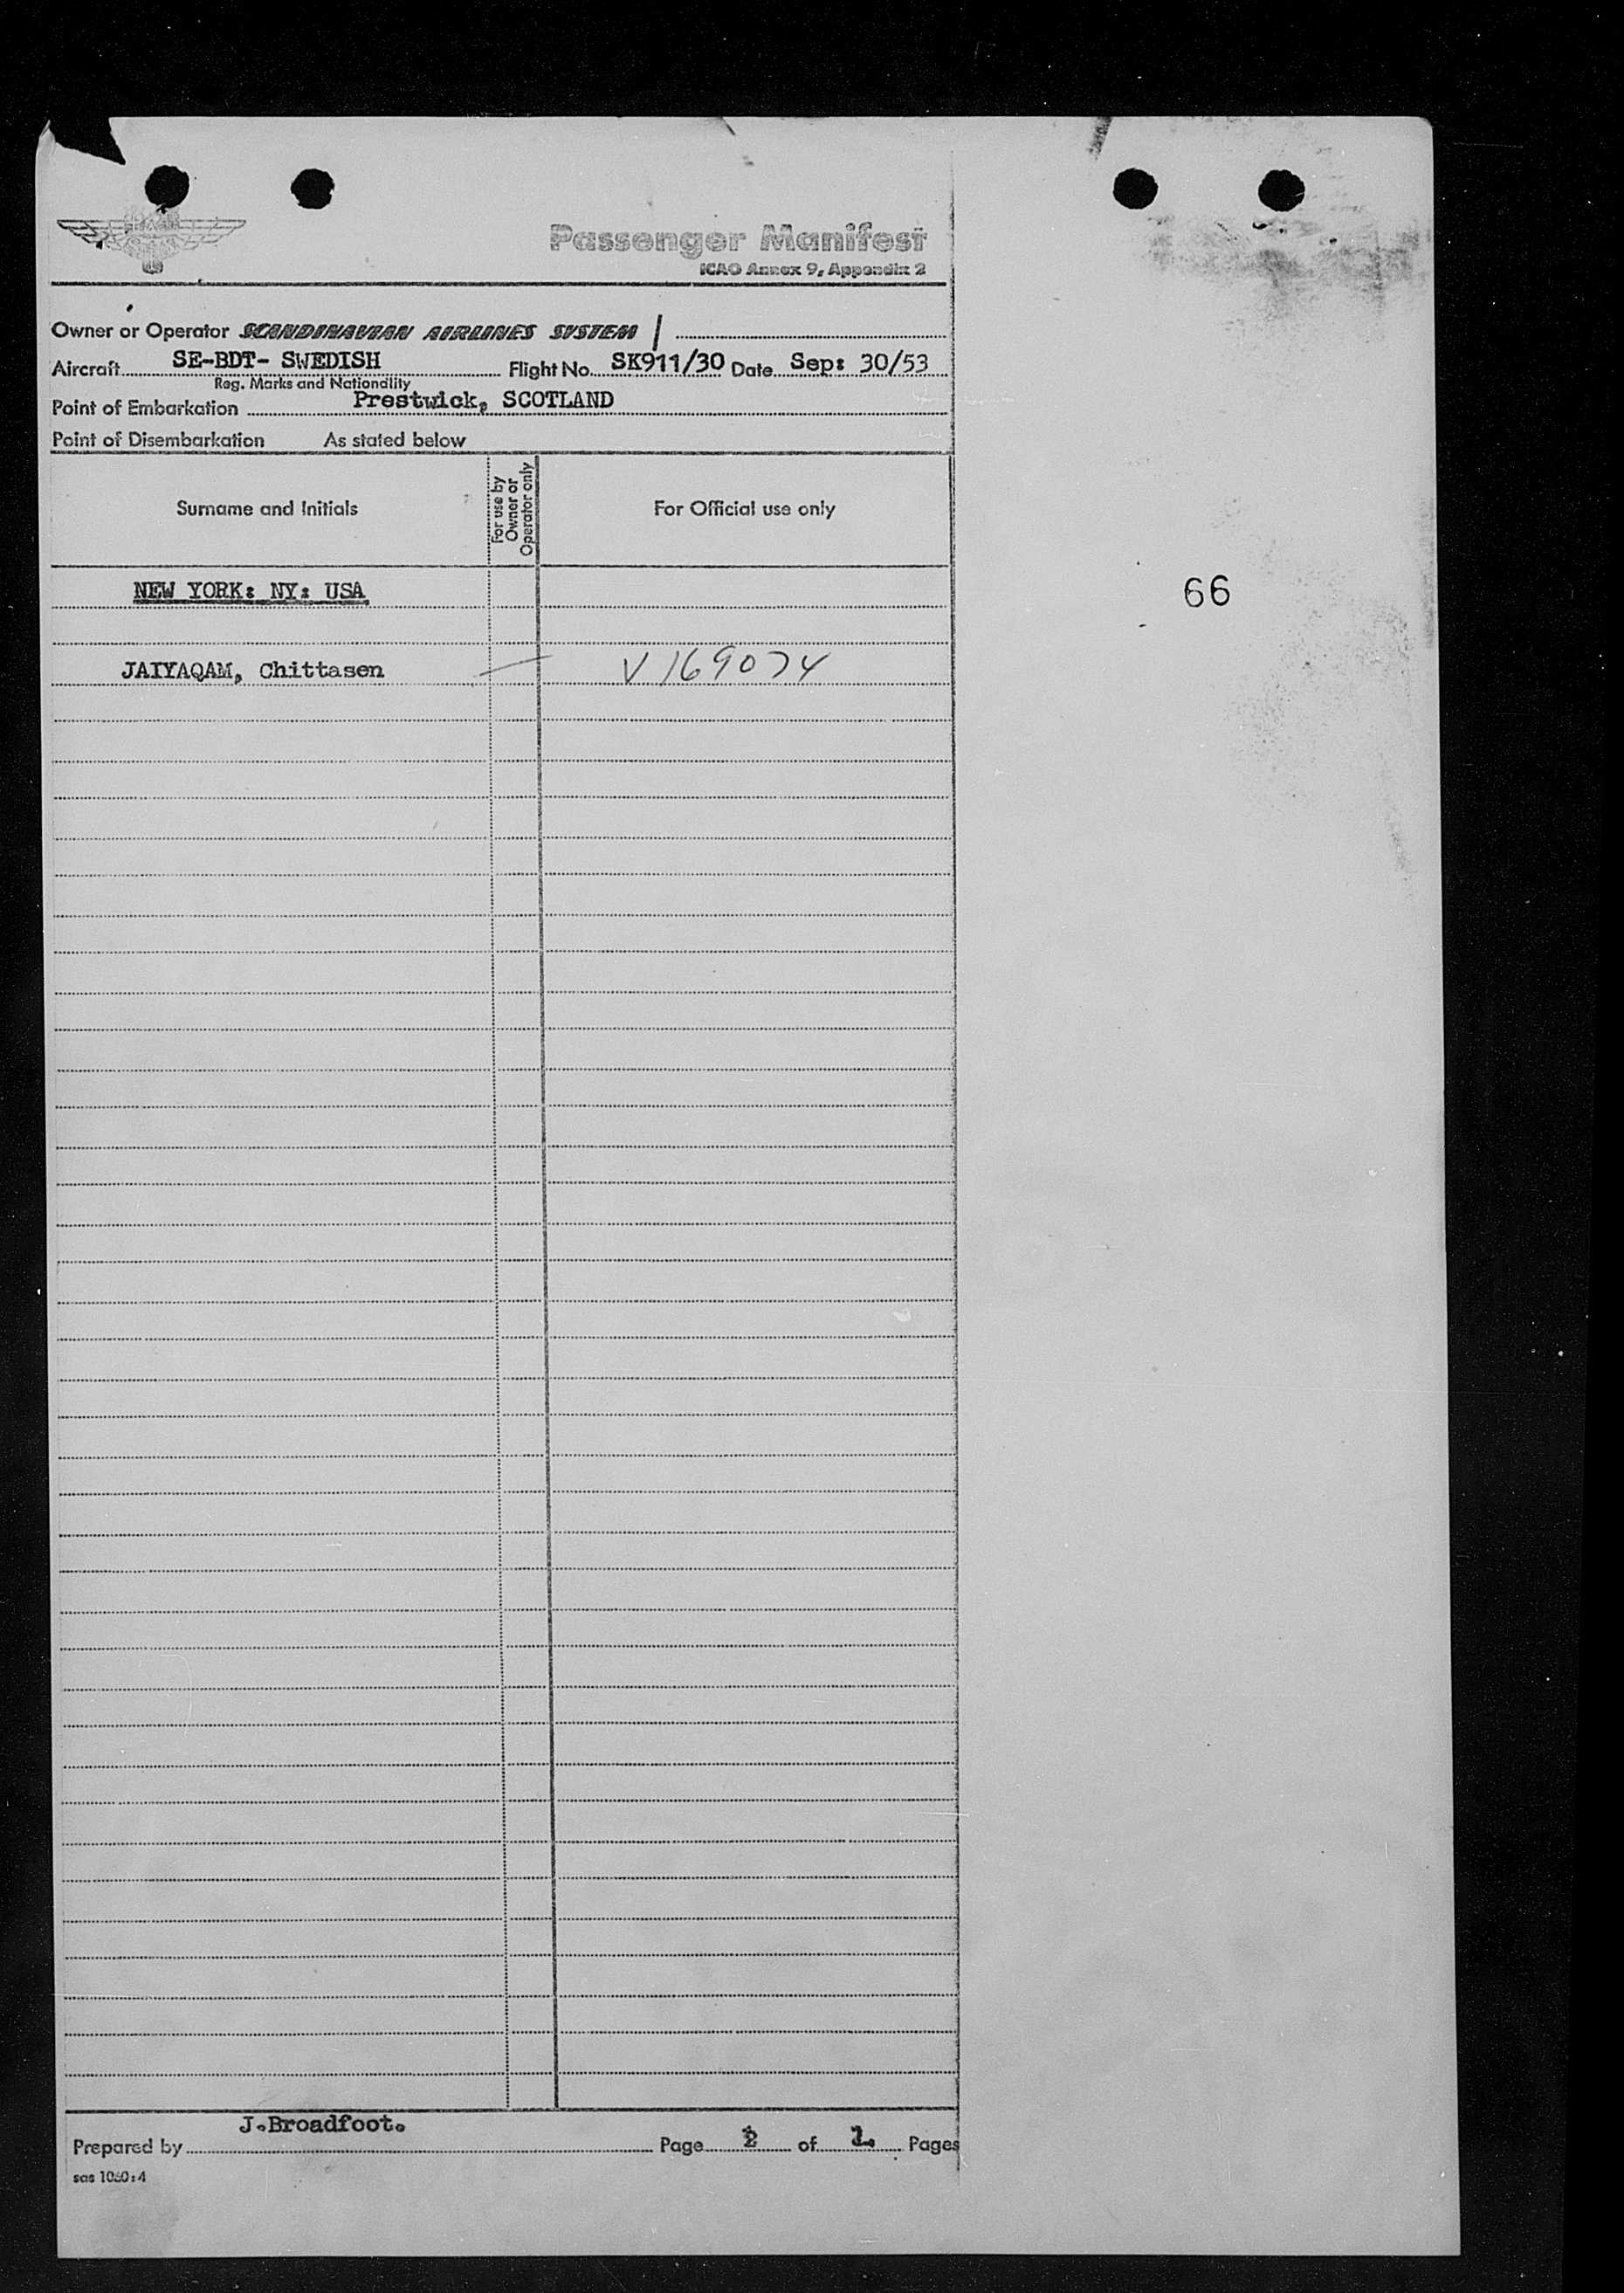 Passenger Manifest
ICAO Annex 9, Appendix 2
Owner or Operator SCANDINAVIAN AIRLINES SYSTEM
Aircraft SE-BDT- SWEDISH Flight No. SK911/30 Date Sep: 30/53
Reg. Marks and Nationality
Point of Embarkation Prestwick, SCOTLAND
Point of Disembarkation As stated below
Surname and Initials For use by Owner or Operator only For Official use only
NEW YORK: NY: USA
66
JAIYAQAM, Chittasen V 169074
J.Broadfoot.
Prepared by Page of 1. Pages